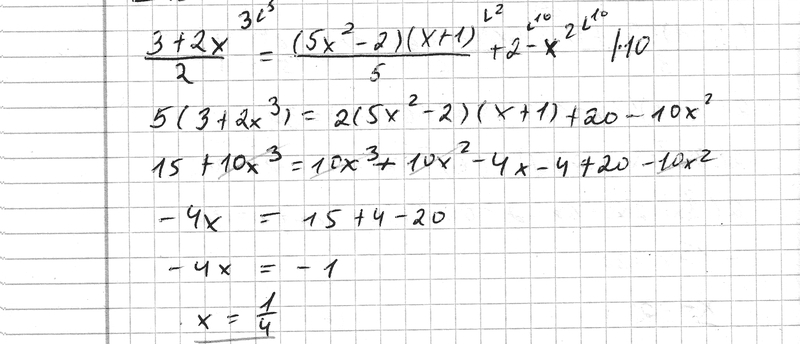 (3+2x³)/2 = (5x²-2)(x+1)/5 + 2 - x² /·10
5(3+2x³) = 2(5x²-2)(x+1)+20-10x²
15+10x³=10x³+10x²-4x-4+20-10x²
-4x = 15+4-20
-4x = -1
x = 1/4